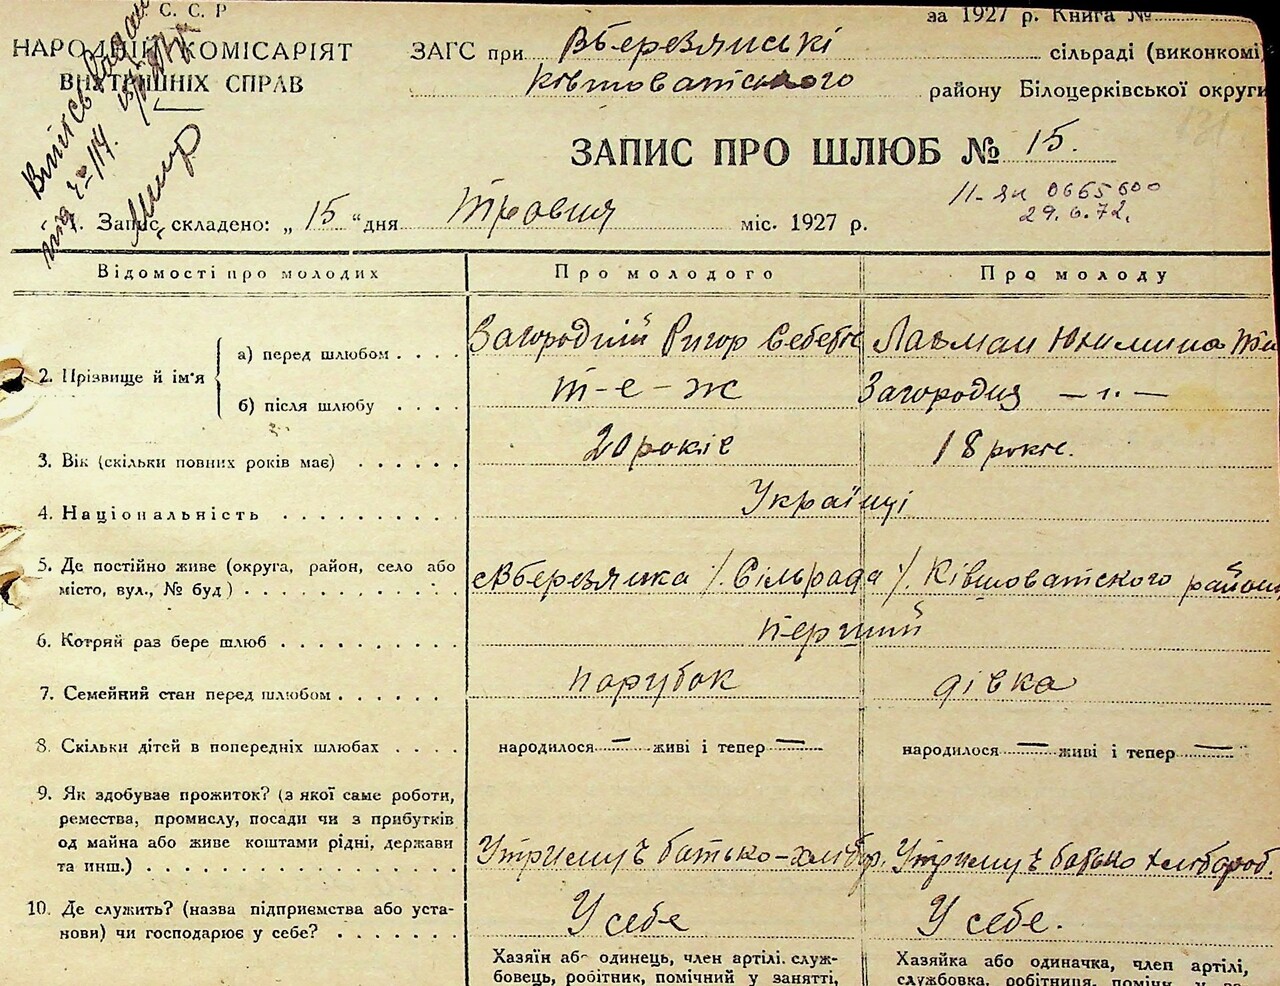 С. С. Р
за 1927 р. Книга №
НАРОДНІЙ КОМІСАРІЯТ
ВНУТРІШНІХ СПРАВ
ЗАГС при Вберезянські сільраді (виконкомі
Ківшоватського району Білоцерківської округи
ЗАПИС ПРО ШЛЮБ № 15.
131
II-ЯИ 0665600
29.6.72.
1. Запис складено: „ 15 “ дня Травня міс. 1927 р.
Відомості про молодих
Про молодого
Про молоду
2. Прізвище й ім'я
а) перед шлюбом . . . .
Загородній Ригор
Юхимина
б) після шлюбу . . . .
т-е-ж
Загородня — „ —
3. Вік (скільки повних років має) . . . . . .
20 років
18 років.
4. Національність . . . . . . . . . .
Українці
5. Де постійно живе (округа, район, село або
місто, вул., № буд) . . . . . . . . . .
сВберезянка /. Сільрада /. Ківшоватского району
6. Котрий раз бере шлюб . . . . . . . . . .
перший
7. Семейний стан перед шлюбом . . . . . .
парубок
дівка
8. Скільки дітей в попередніх шлюбах . . . .
народилося — живі і тепер —
народилося — живі і тепер —
9. Як здобуває прожиток? (з якої саме роботи,
ремества, промислу, посади чи з прибутків
од майна або живе коштами рідні, держави
та инш.) . . . . . . . . . . . . . . . .
батько-хлібор.
батько хлібороб.
10. Де служить? (назва підприємства або уста-
нови) чи господарює у себе? . . . . . . .
У себе
У себе.
Хазяїн або одинець, член артілі, служ-
бовець, робітник, помічний у занятті,
Хазяйка або одиначка, член артілі,
службовка, робітниця,